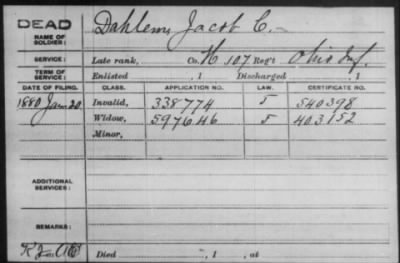 DEAD Dahlem, Jacob C.
NAME OF SOLDIER:
SERVICE: Late rank, Co. H 107 Reg't Ohio Inf.
TERM OF SERVICE: Enlisted , 1 Discharged , 1
DATE OF FILING. CLASS. APPLICATION NO. LAW. CERTIFICATE NO.
1880 Jan 20 Invalid, 338774 5 540398
Widow, 597646 5 403152
Minor,
ADDITIONAL SERVICES:
REMARKS:
Died , 1 , at